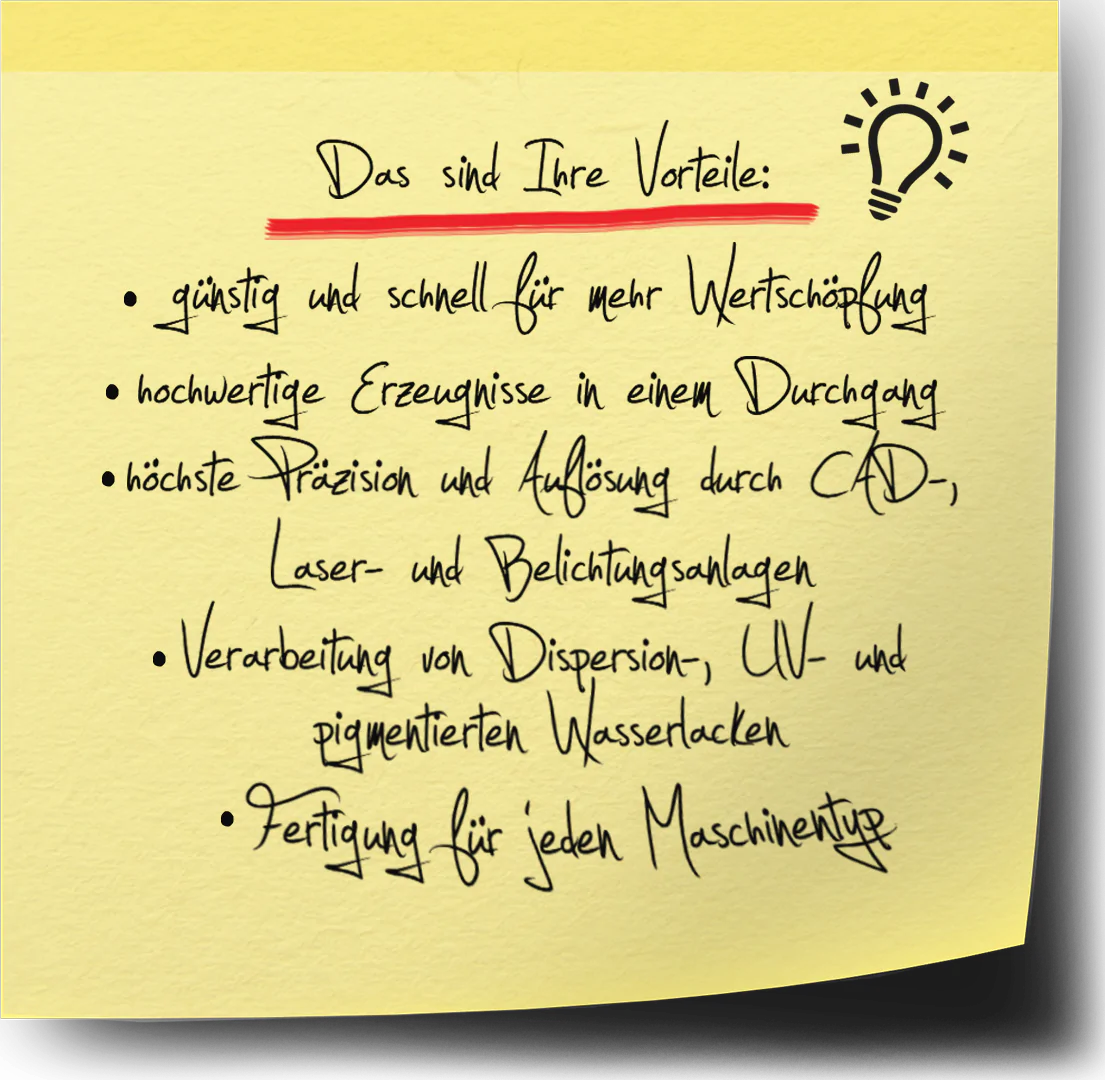 Das sind Ihre Vorteile:
• günstig und schnell für mehr Wertschöpfung
• hochwertige Erzeugnisse in einem Durchgang
• höchste Präzision und Auflösung durch CAD-,
Laser- und Belichtungsanlagen
• Verarbeitung von Dispersion-, UV- und
pigmentierten Wasserlacken
• Fertigung für jeden Maschinentyp